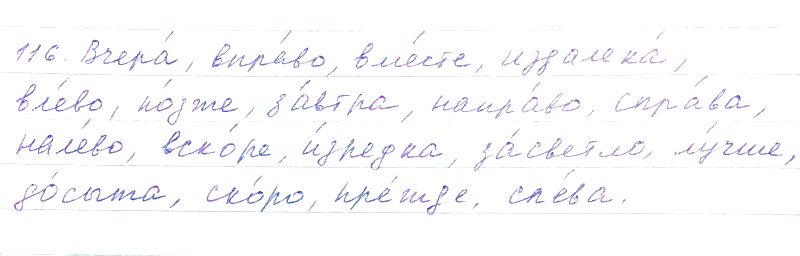 116. Вчера́, впра́во, вме́сте, издалека́,
вле́во, по́зже, за́втра, напра́во, спра́ва,
нале́во, вско́ре, и́зредка, за́светло, лу́чше,
до́сыта, ско́ро, пре́жде, сле́ва.